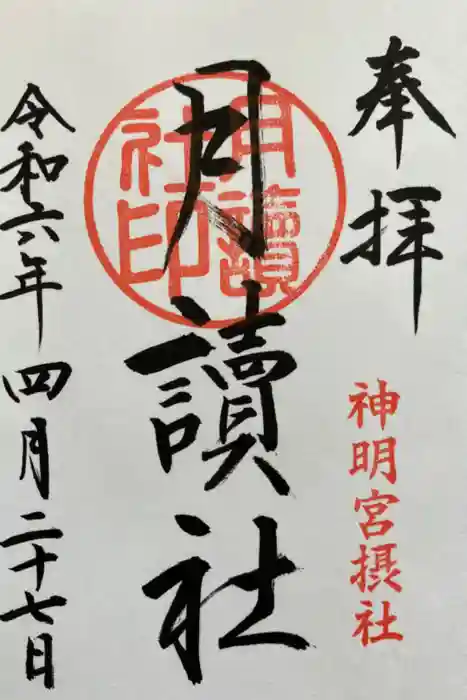 奉拝
神明宮摂社
月讀社
月讀社印
令和六年四月二十七日